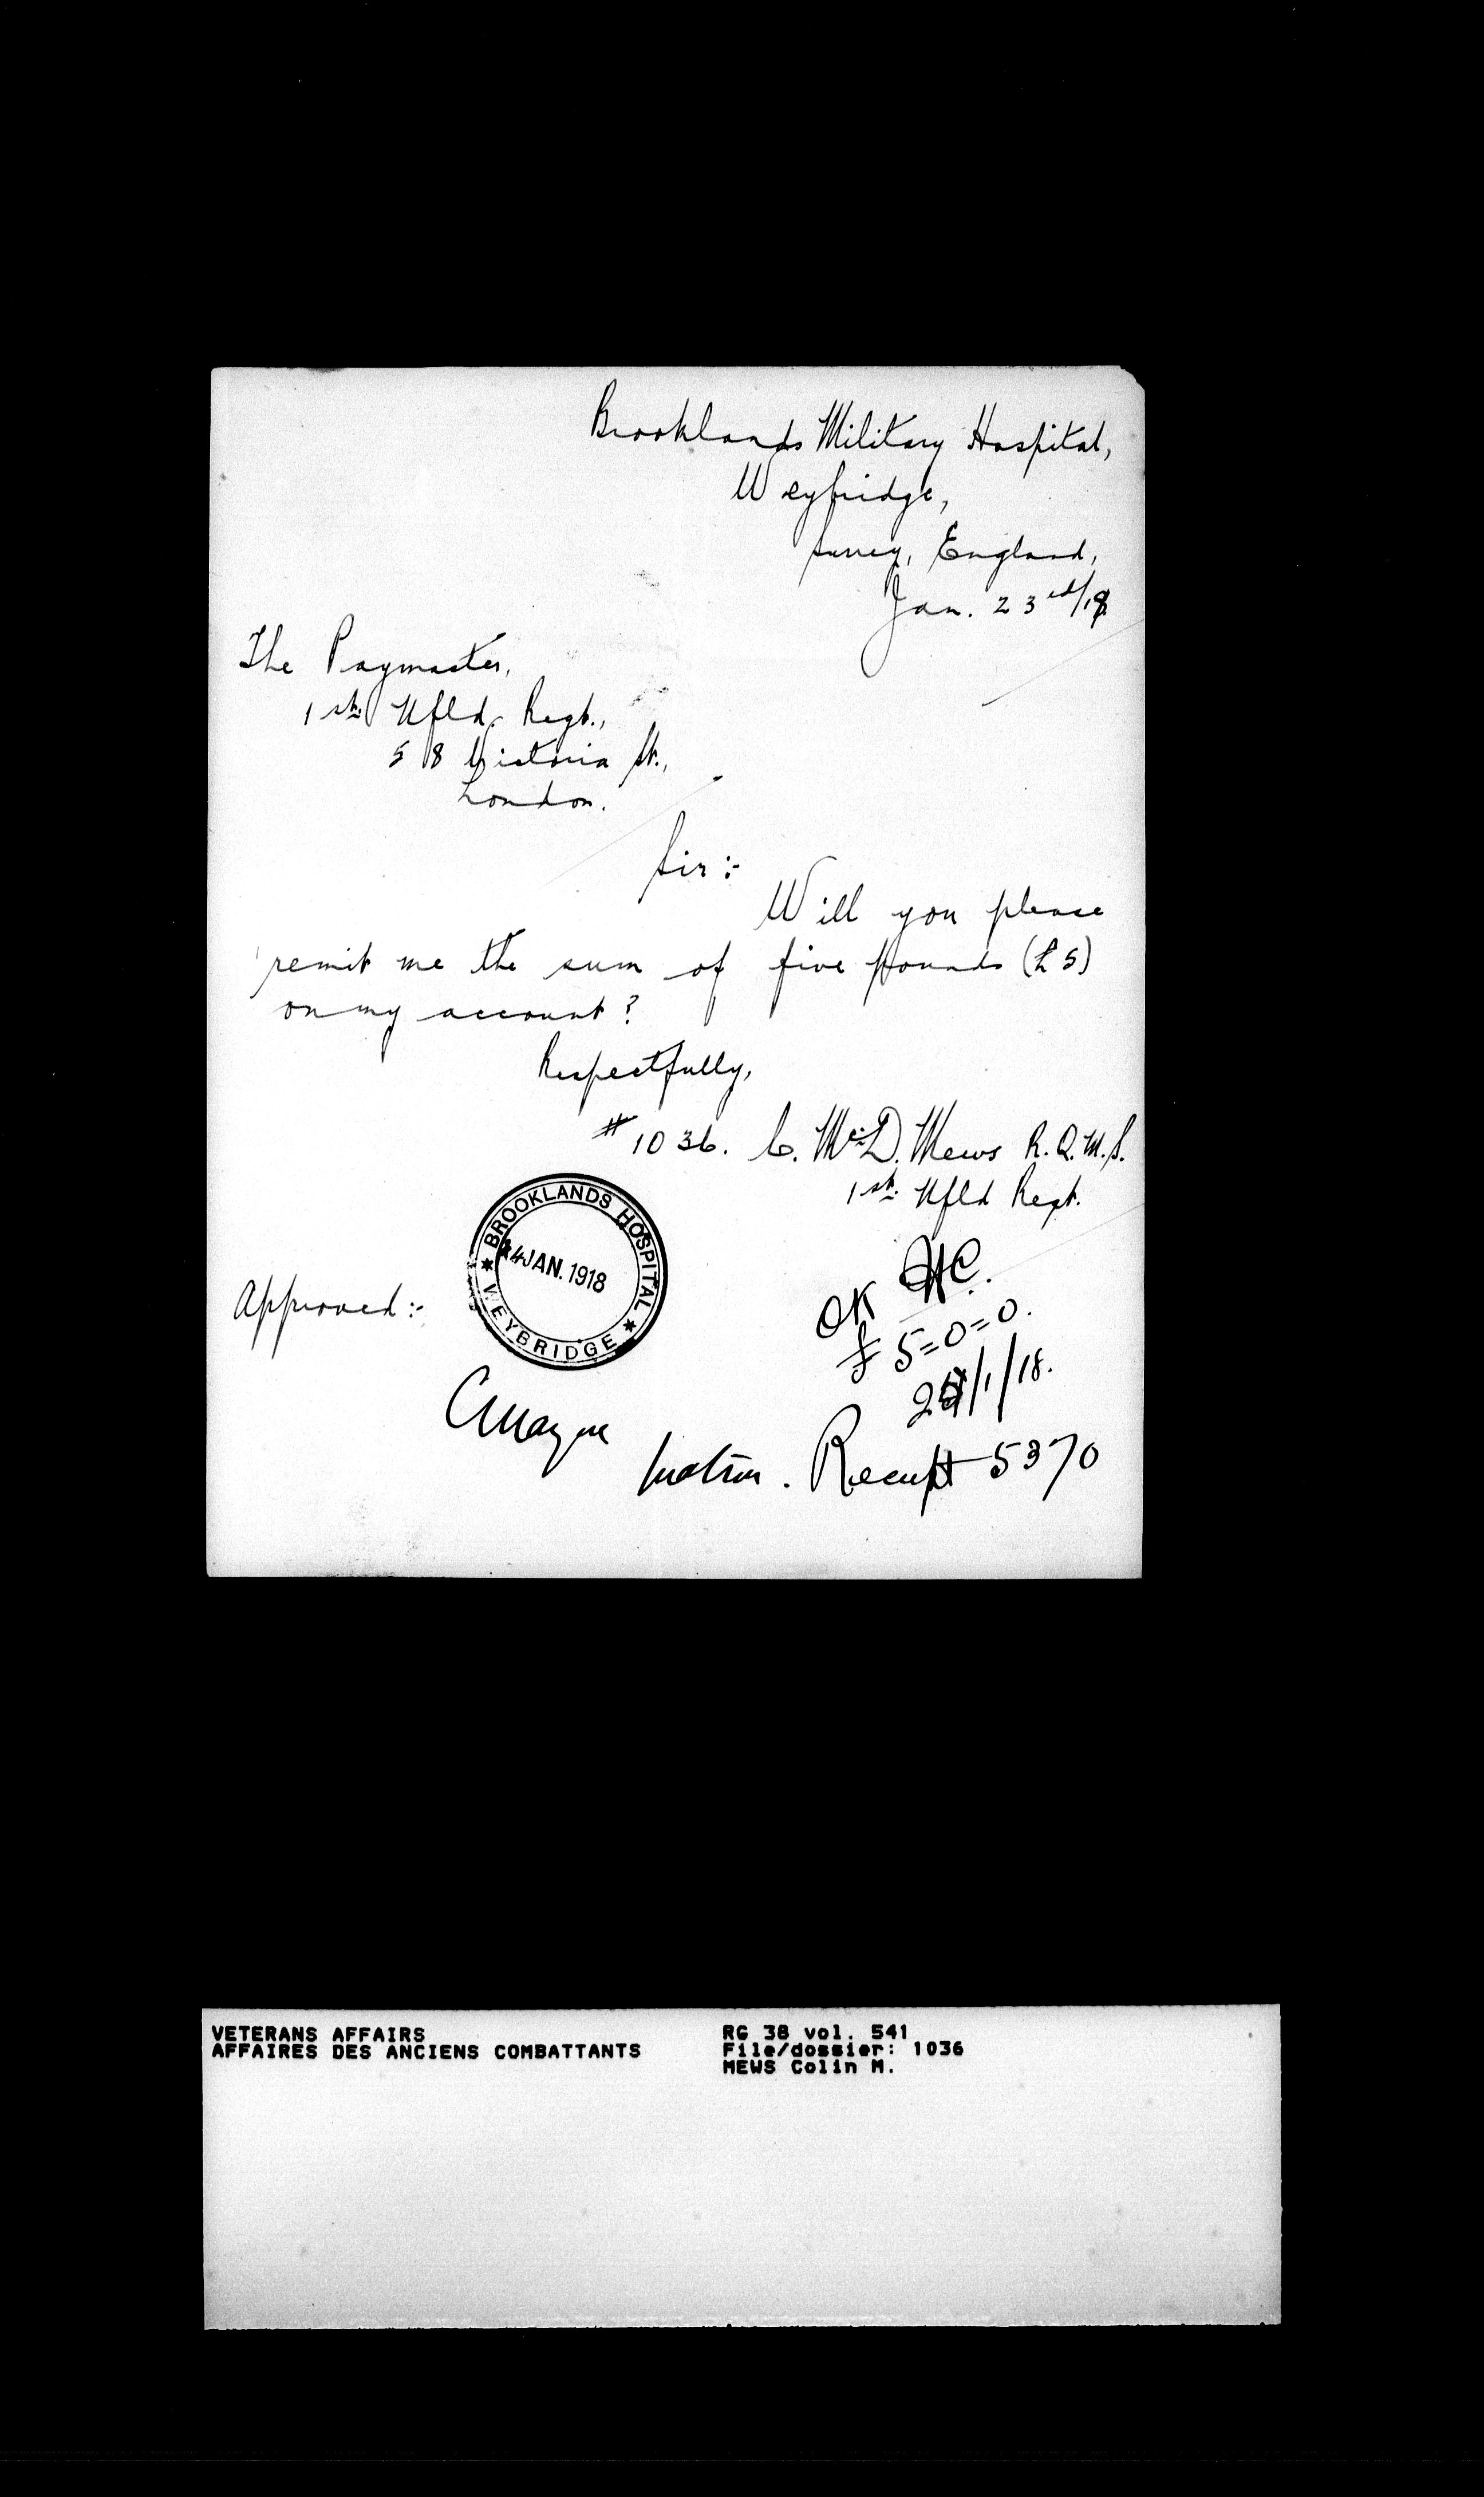 Brooklands Military Hospital,
Weybridge,
Surrey, England,
Jan. 23rd/18
The Paymaster,
1st Nfld. Regt.,
58 Victoria St.,
London.
Sir :-
Will you please
remit me the sum of five pounds (£5)
on my account?
Respectfully,
#1036. C. McD. Mews R.Q.M.S.
1st. Nfld Regt.
BROOKLANDS HOSPITAL
24 JAN. 1918
WEYBRIDGE
Approved :-
OK HC.
£5=0=0.
/1/18.
Matron. Receipt 5370
VETERANS AFFAIRS
AFFAIRES DES ANCIENS COMBATTANTS
RG 38 vol. 541
File/dossier: 1036
MEWS Colin M.